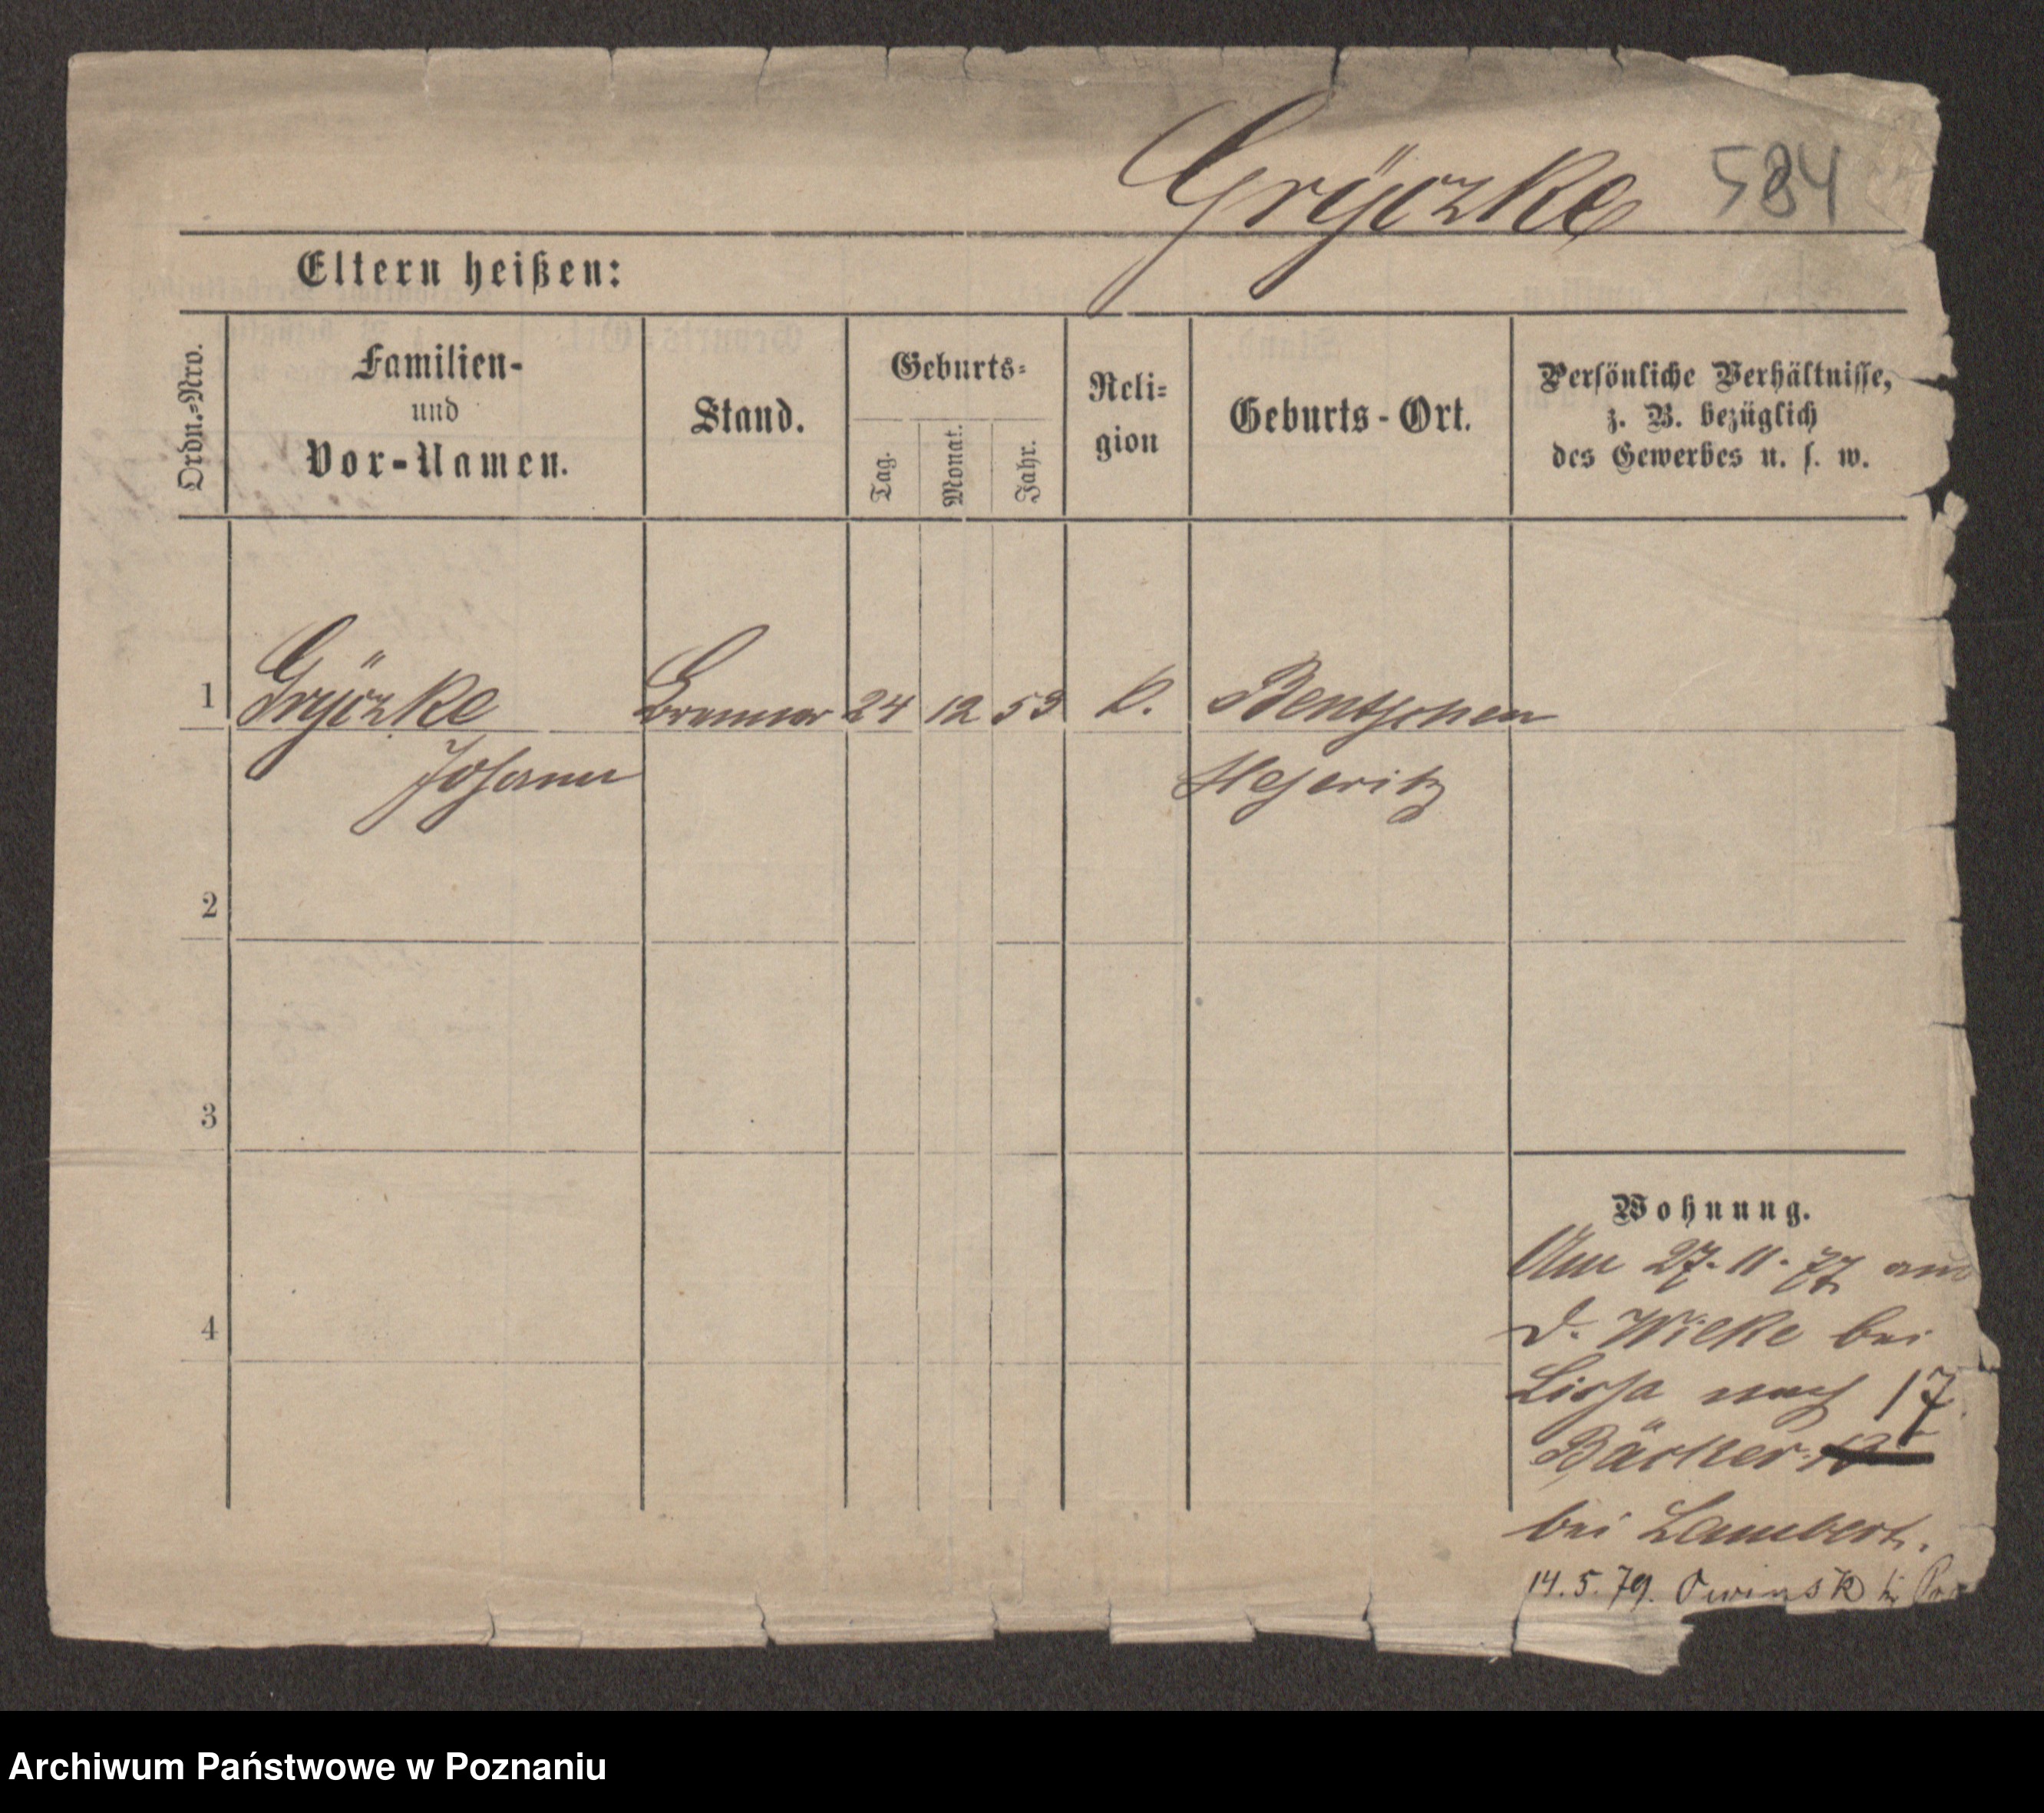 Gryczke 584
Eltern heißen:
Ordn.-Nro.
Familien-
und
Vor-Namen.
Stand.
Geburts-
Tag.
Monat.
Jahr.
Reli-
gion
Geburts-Ort.
Persönliche Verhältnisse,
z. B. bezüglich
des Gewerbes u. s. w.
1 Gryczke 24 12 53 k. Bentschen
Johann Meseritz
2
3
4
Wohnung.
Am 27.11.77 aus
d. Wieke bei
Lissa nach 17
Bäcker
bei Lambert.
14.5.79. Owinsk b/
Archiwum Państwowe w Poznaniu